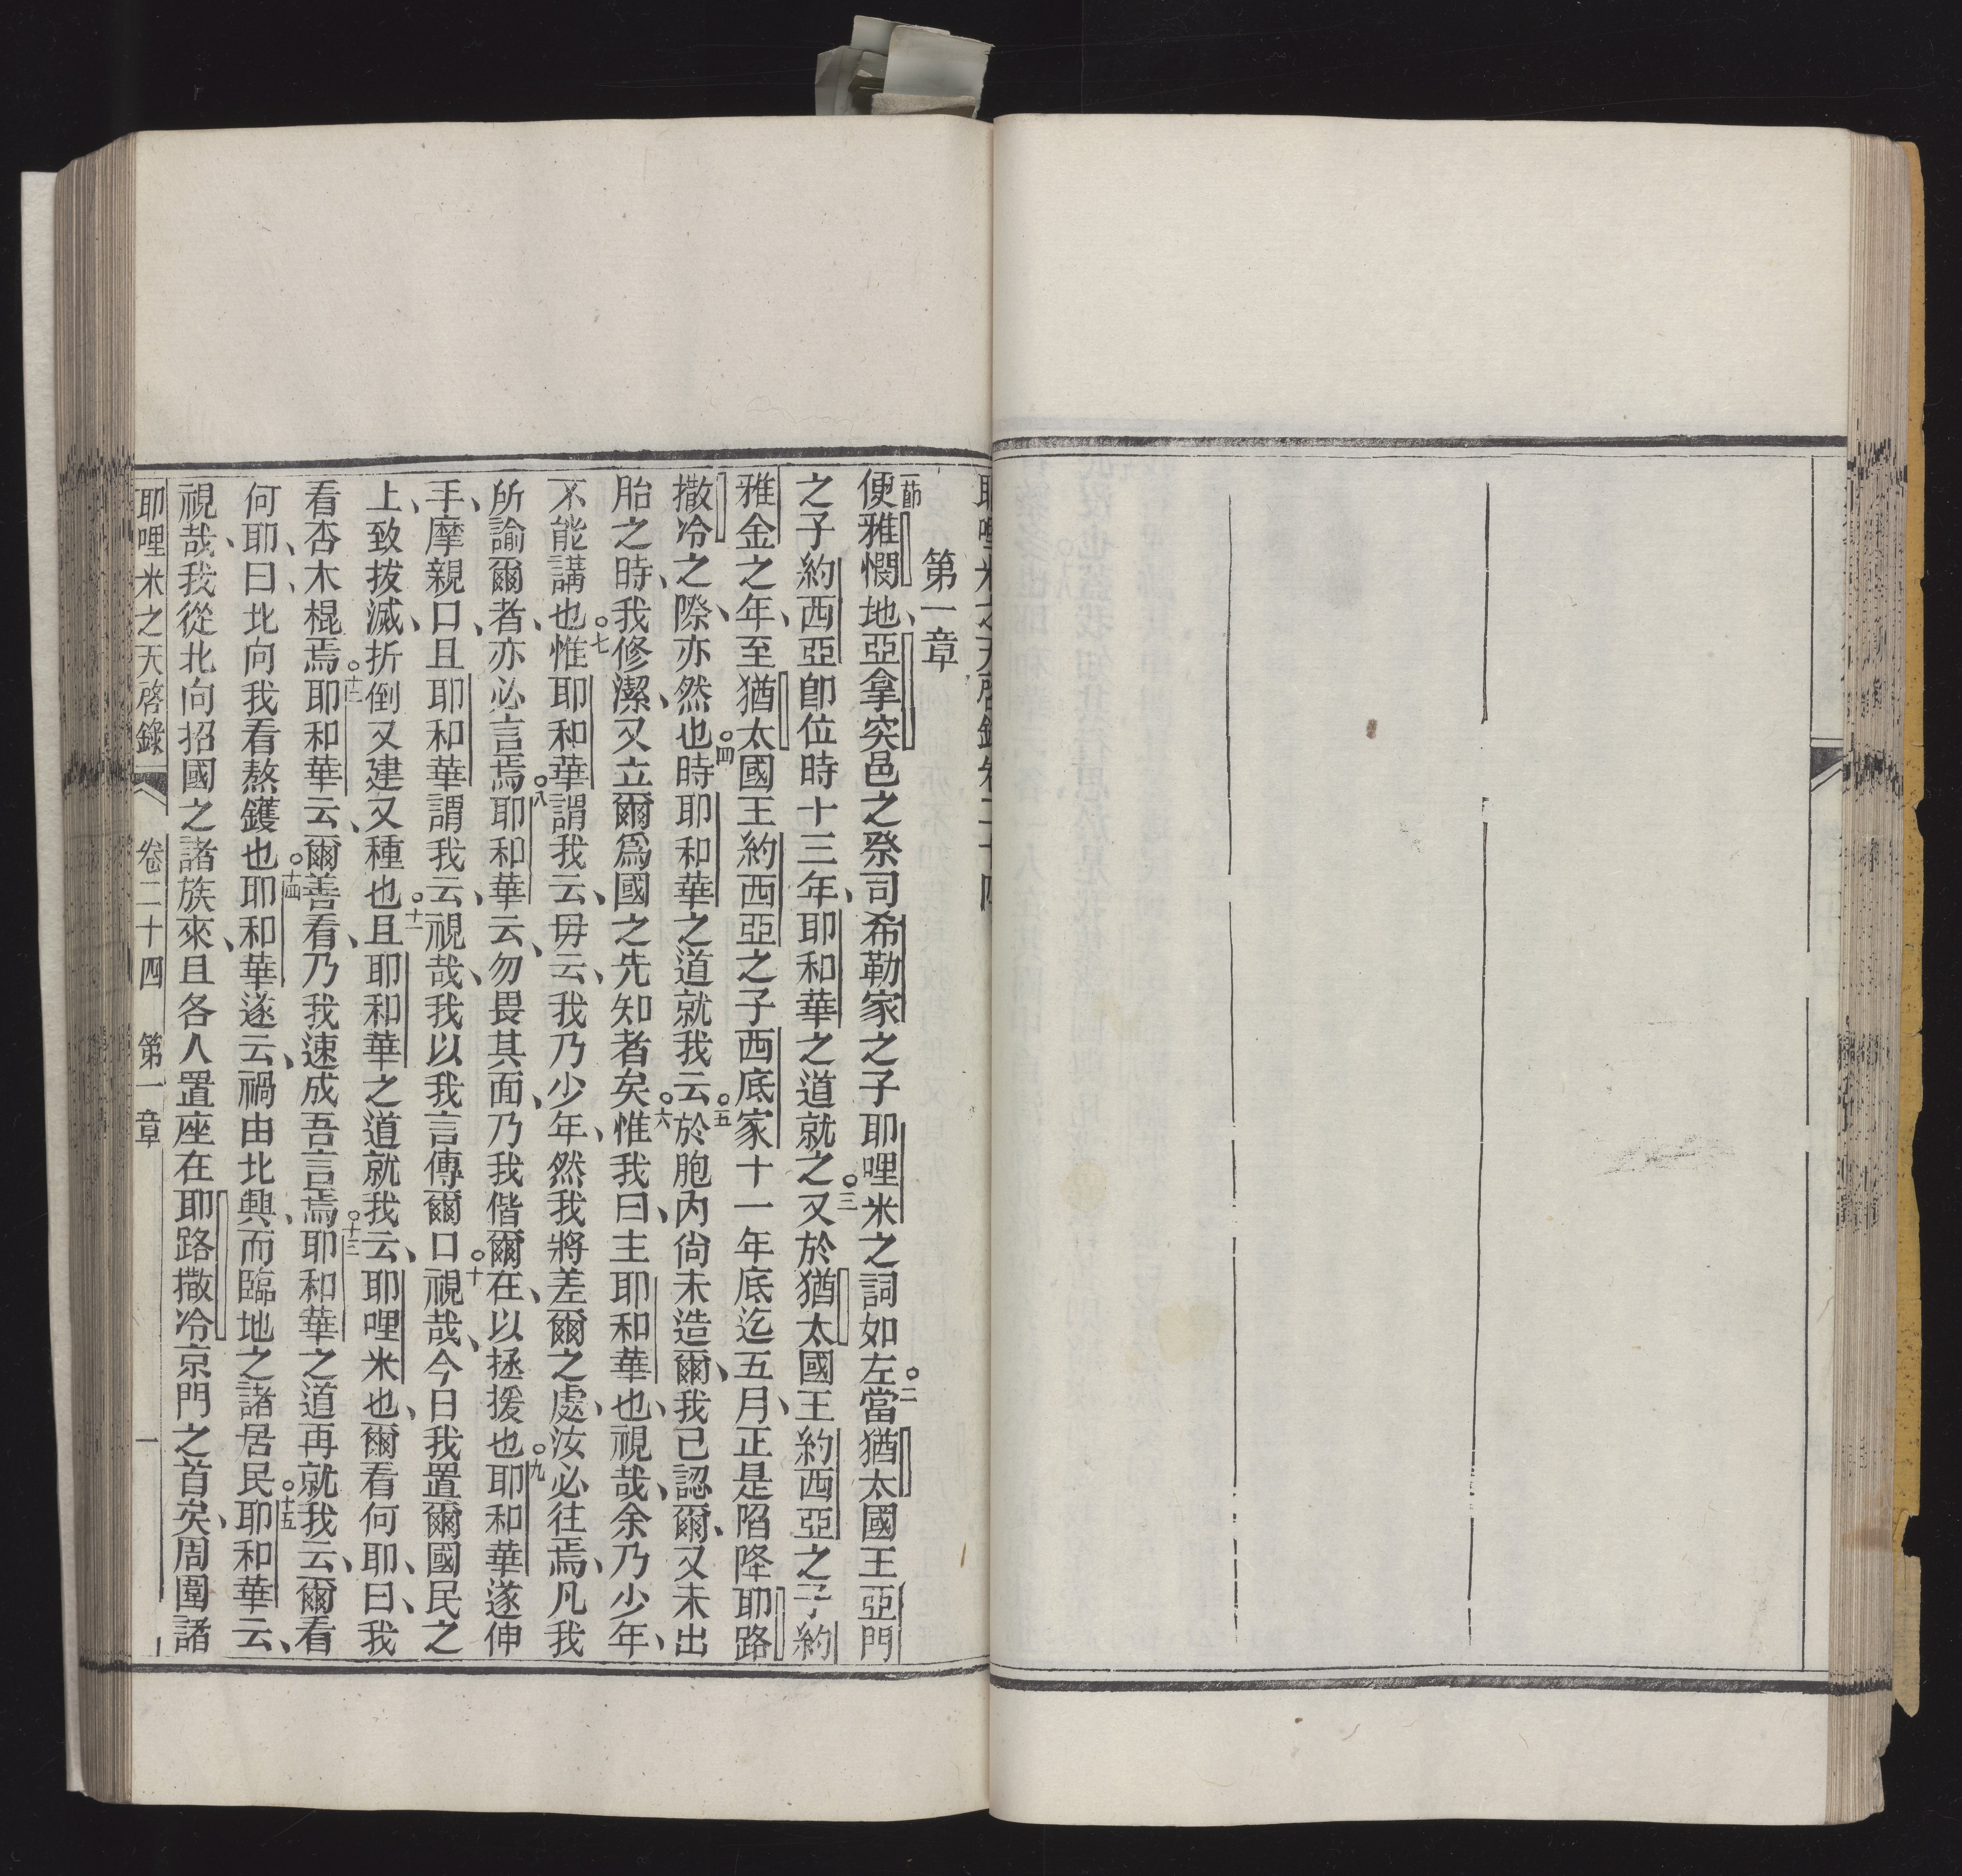 耶哩米之天啓錄卷二十四
第一章
一節便雅憫地、亞拿突邑之祭司希勒家之子耶哩米之詞如左○二當猶太國王亞門
之子約西亞卽位時十三年、耶和華之道就之○三又於猶太國王約西亞之子約
雅金之年、至猶太國王約西亞之子西底家十一年底迄五月、正是陷降耶路
撒冷之際、亦然也○四時耶和華之道就我云○五於胞內尙未造爾、我已認爾、又未出
胎之時、我修潔、又立爾爲國之先知者矣○六惟我曰、主耶和華也、視哉、余乃少年、
不能講也○七惟耶和華謂我云、毋云、我乃少年、然我將差爾之處、汝必往焉、凡我
所諭爾者、亦必言焉○八耶和華云、勿畏其面、乃我偕爾在、以拯援也○九耶和華遂伸
手、摩親口、且耶和華謂我云、視哉、我以我言傳爾口○十視哉、今日我置爾國民之
上、致拔滅、折倒又建又種也○十一且耶和華之道就我云、耶哩米也、爾看何耶、曰、我
看杏木棍焉○十二耶和華云、爾善看、乃我速成吾言焉○十三耶和華之道再就我云、爾看
何耶、曰、北向我看熬鑊也○十四耶和華遂云、禍由北興、而臨地之諸居民○十五耶和華云、
視哉、我從北向招國之諸族來、且各人置座在耶路撒冷京門之首矣、周圍諸
耶哩米之天啓錄 卷二十四 第一章 一